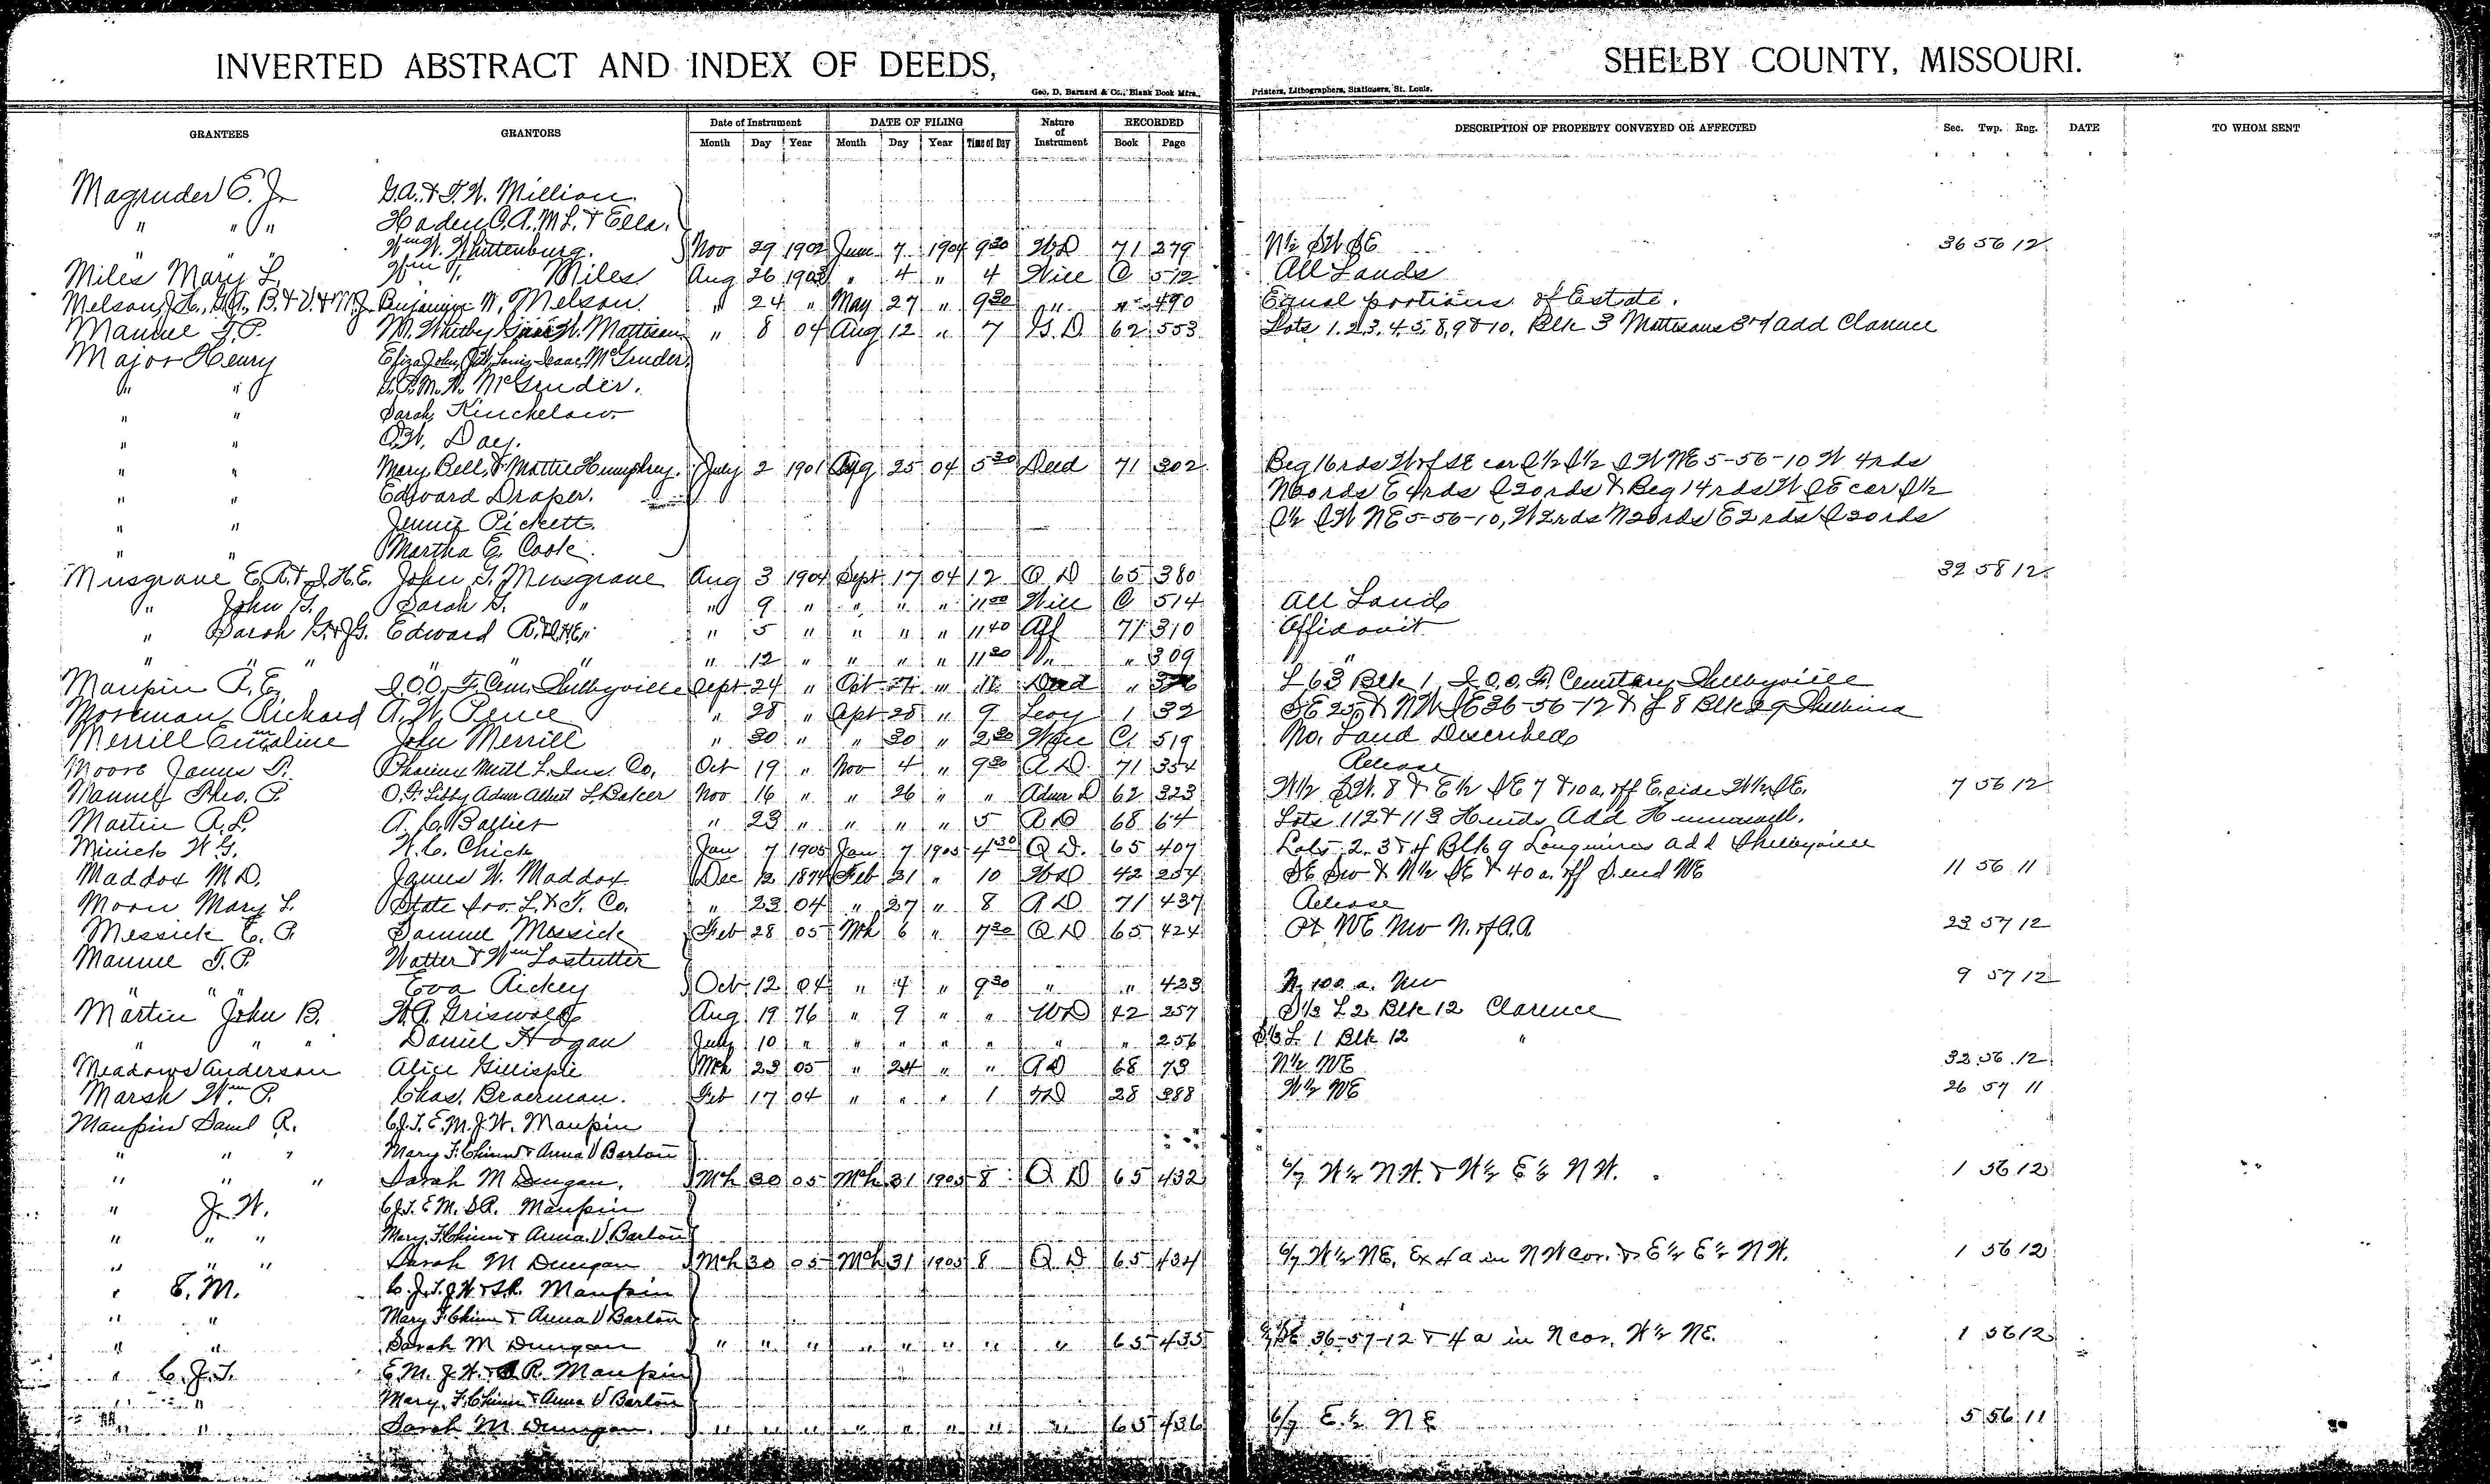 INVERTED ABSTRACT AND INDEX OF DEEDS, SHELBY COUNTY, MISSOURI.
Geo. D. Barnard & Co., Blank Book Mfrs., Printers, Lithographers, Stationers, St. Louis.
GRANTEES GRANTORS Date of Instrument DATE OF FILING Nature of Instrument RECORDED DESCRIPTION OF PROPERTY CONVEYED OR AFFECTED Sec. Twp. Rng. DATE TO WHOM SENT
Month Day Year Month Day Year Time of Day Book Page
Magruder E. J. G.A. & T.W. Million
" " " Haden C.A. M.L. & Ella.
" " " Wm W. Whittenburg. Nov 29 1902 June 7 1904 9 30 WD 71 279 N½ SW SE 36 56 12
Miles Mary L. Wm T. Miles Aug 26 1903 " 4 " 4 Will C 512 All Lands
Melson, B. & V. & M.J. Benjamin W. Melson " 24 " May 27 " 9 30 " " 490 Equal portions of Estate.
Mannie T.P. W. Mattison " 8 04 Aug 12 " 7 G. D 62 553 Lots 1.2.3.4.5.8,9&10. Blk 3 Mattisons 3rd add Clarence
Major Henry Eliza, John, Louis, Isaac, McGruder.
" " G.P. M.W. McGruder.
" " Sarah Kinchelow
" " O.W. Day.
" " Mary, Bell, & Mattie Humphrey. July 2 1901 Aug 25 04 5 30 Deed 71 302 Beg 16 rds W of SE cor S½ S½ SW NE 5-56-10 W 4rds
" " Edward Draper. N20rds E 4rds S20rds & Beg 14 rds W SE cor S½
" " Jennie Pickett. S½ SW NE 5-56-10, W2rds N20rds E2rds S20rds
" " Martha E. Cook.
Musgrave E.R. & J.H.E. John G. Musgrave Aug 3 1904 Sept 17 04 12 Q D 65 380 32 58 12
" John G. Sarah G. " " 9 " " " " 11 00 Will C 514 All Land
" Sarah G. & J.G. Edward R. & J.H.E. " " 5 " " " " 11 40 Aff 71 310 Affidavit
" " " " " " 12 " " " " 11 20 " " 309 "
Maupin R. E. I.O.O.F. Cem. Shelbyville Sept 24 " Oct " Deed " L 63 Blk 1 I.O.O.F. Cemetary Shelbyville
Moreman Richard A. W. Pence " 28 " 28 " 9 Levy 1 32 SE 25 & NW SE 36-56-12 & L 8 Blk 29 Shelbina
Merrill Emmaline John Merrill " 30 " " 30 " 2 30 Will C. 519 No. Land Described
Moore James Phoenix Mutl L. Ins. Co. Oct 19 " Nov 4 " 9 30 R D. 71 354 Release
Mannie Theo. P. O.F. Libby Admr Albert L. Baker Nov 16 " " 26 " " Admr D 62 323 W½ SW. 8 & E½ SE 7 & 10 a. off E. side W½ SE. 7 56 12
Martin R. L. A. C. " 23 " " " " 5 R D 68 64 Lots 112 & 113 Hunnewell.
Minick W. G. W. C. Chick Jan 7 1905 Jan 7 1905 4 30 Q D. 65 407 Lots 2. 3 & 4 Blk 9 Longmires add Shelbyville
Maddox M. D. James W. Maddox Dec 12 1874 Feb 21 " 10 WD 42 254 SE SW & N½ SE & 40 a. off S. end NE 11 56 11
Moore Mary L. State Sav. L. & T. Co. " 23 04 " 27 " 8 R D 71 437 Release
Messick E. P. Samuel Messick Feb 28 05 Mch 6 " 7 30 Q D 65 424 Pt NE NW N. of R.R 23 57 12
Mannie T. P. Walter & Wm Lostutter
" " " Eva Rickey Oct 12 04 " 4 " 9 30 " " 423 N 100 a. NW 9 57 12
Martin John B. W. A. Griswold Aug 19 76 " 9 " " WD 42 257 S⅓ L 2 Blk 12 Clarence
" " " Daniel Hogan July 10 " " " " " " " 256 S⅓ L 1 Blk 12 "
Meadows Anderson Alice Gillispie Mch 23 05 " 24 " " R D 68 73 N½ NE 32 56 12
Marsh Wm. P. Chas. Braerman. Feb 17 04 " " " 1 TD 28 388 W½ NE 26 57 11
Maupin Saml R. C.J.T. E.M. J.W. Maupin
" " " Mary F. Chinn & Anna V Barton
" " " Sarah M Dungan. Mch 30 05 Mch 31 1905 8 Q D 65 432 6/7 W½ NW. & W½ E½ NW. 1 56 12
" J. W. C.J.T. E M. S R. Maupin
" " " Mary F. Chinn & Anna. V. Barton
" " " Sarah M Dungan Mch 30 05 Mch 31 1905 8 Q D 65 434 6/7 W½ NE. Ex 4 a in NW cor. & E½ E½ NW. 1 56 12
" E. M. C. J. T. J W & S R. Maupin
" " Mary F Chinn & Anna V Barton
" " Sarah M Dungan " " " " " " " " 65 435 6/7 SE 36-57-12 & 4 a in N cor. W½ NE. 1 56 12
" C. J. T. E M. J. W. & S R. Maupin
" " Mary. F. Chinn & Anna V Barton
" " Sarah M. Dungan. " " " " " " " " 65 436 6/7 E½ NE 5 56 11